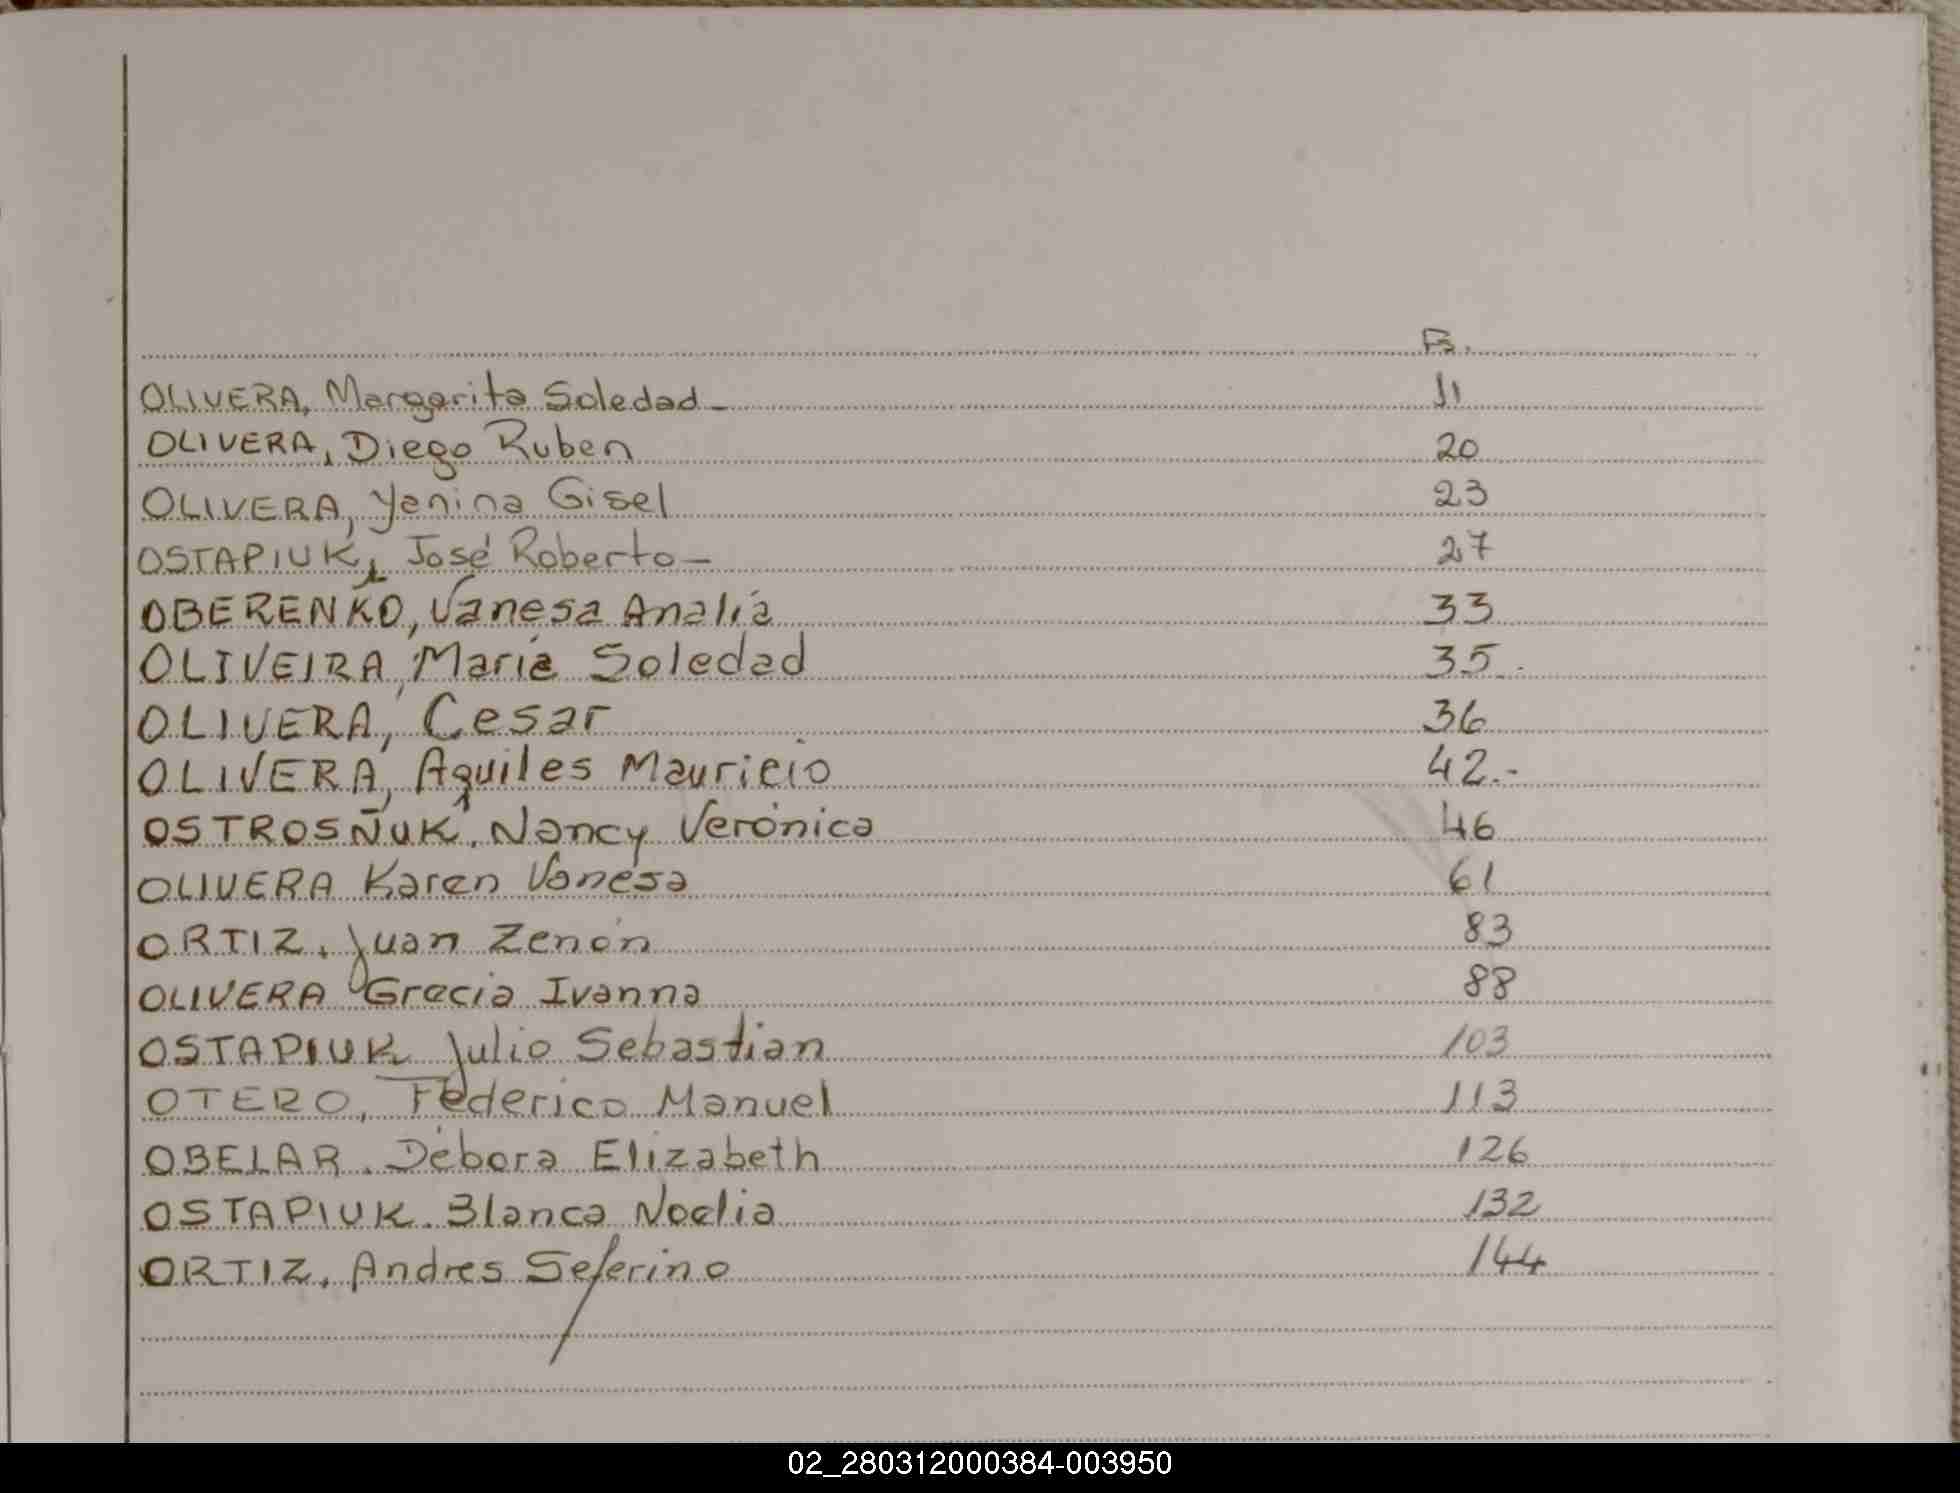 Fs.
OLIVERA, Margarita Soledad- 11
OLIVERA, Diego Ruben 20
OLIVERA, Yanina Gisel 23
OSTAPIUK, José Roberto- 27
OBERENKO, Vanesa Analía 33
OLIVEIRA, María Soledad 35.
OLIVERA, Cesar 36
OLIVERA, Aquiles Mauricio 42.-
OSTROSÑUK, Nancy Verónica 46
OLIVERA Karen Vanesa 61
ORTIZ, Juan Zenón 83
OLIVERA Grecia Ivanna 88
OSTAPIUK Julio Sebastian 103
OTERO, Federico Manuel 113
OBELAR. Débora Elizabeth 126
OSTAPIUK. Blanca Noelia 132
ORTIZ, Andres Seferino 144
02_280312000384-003950